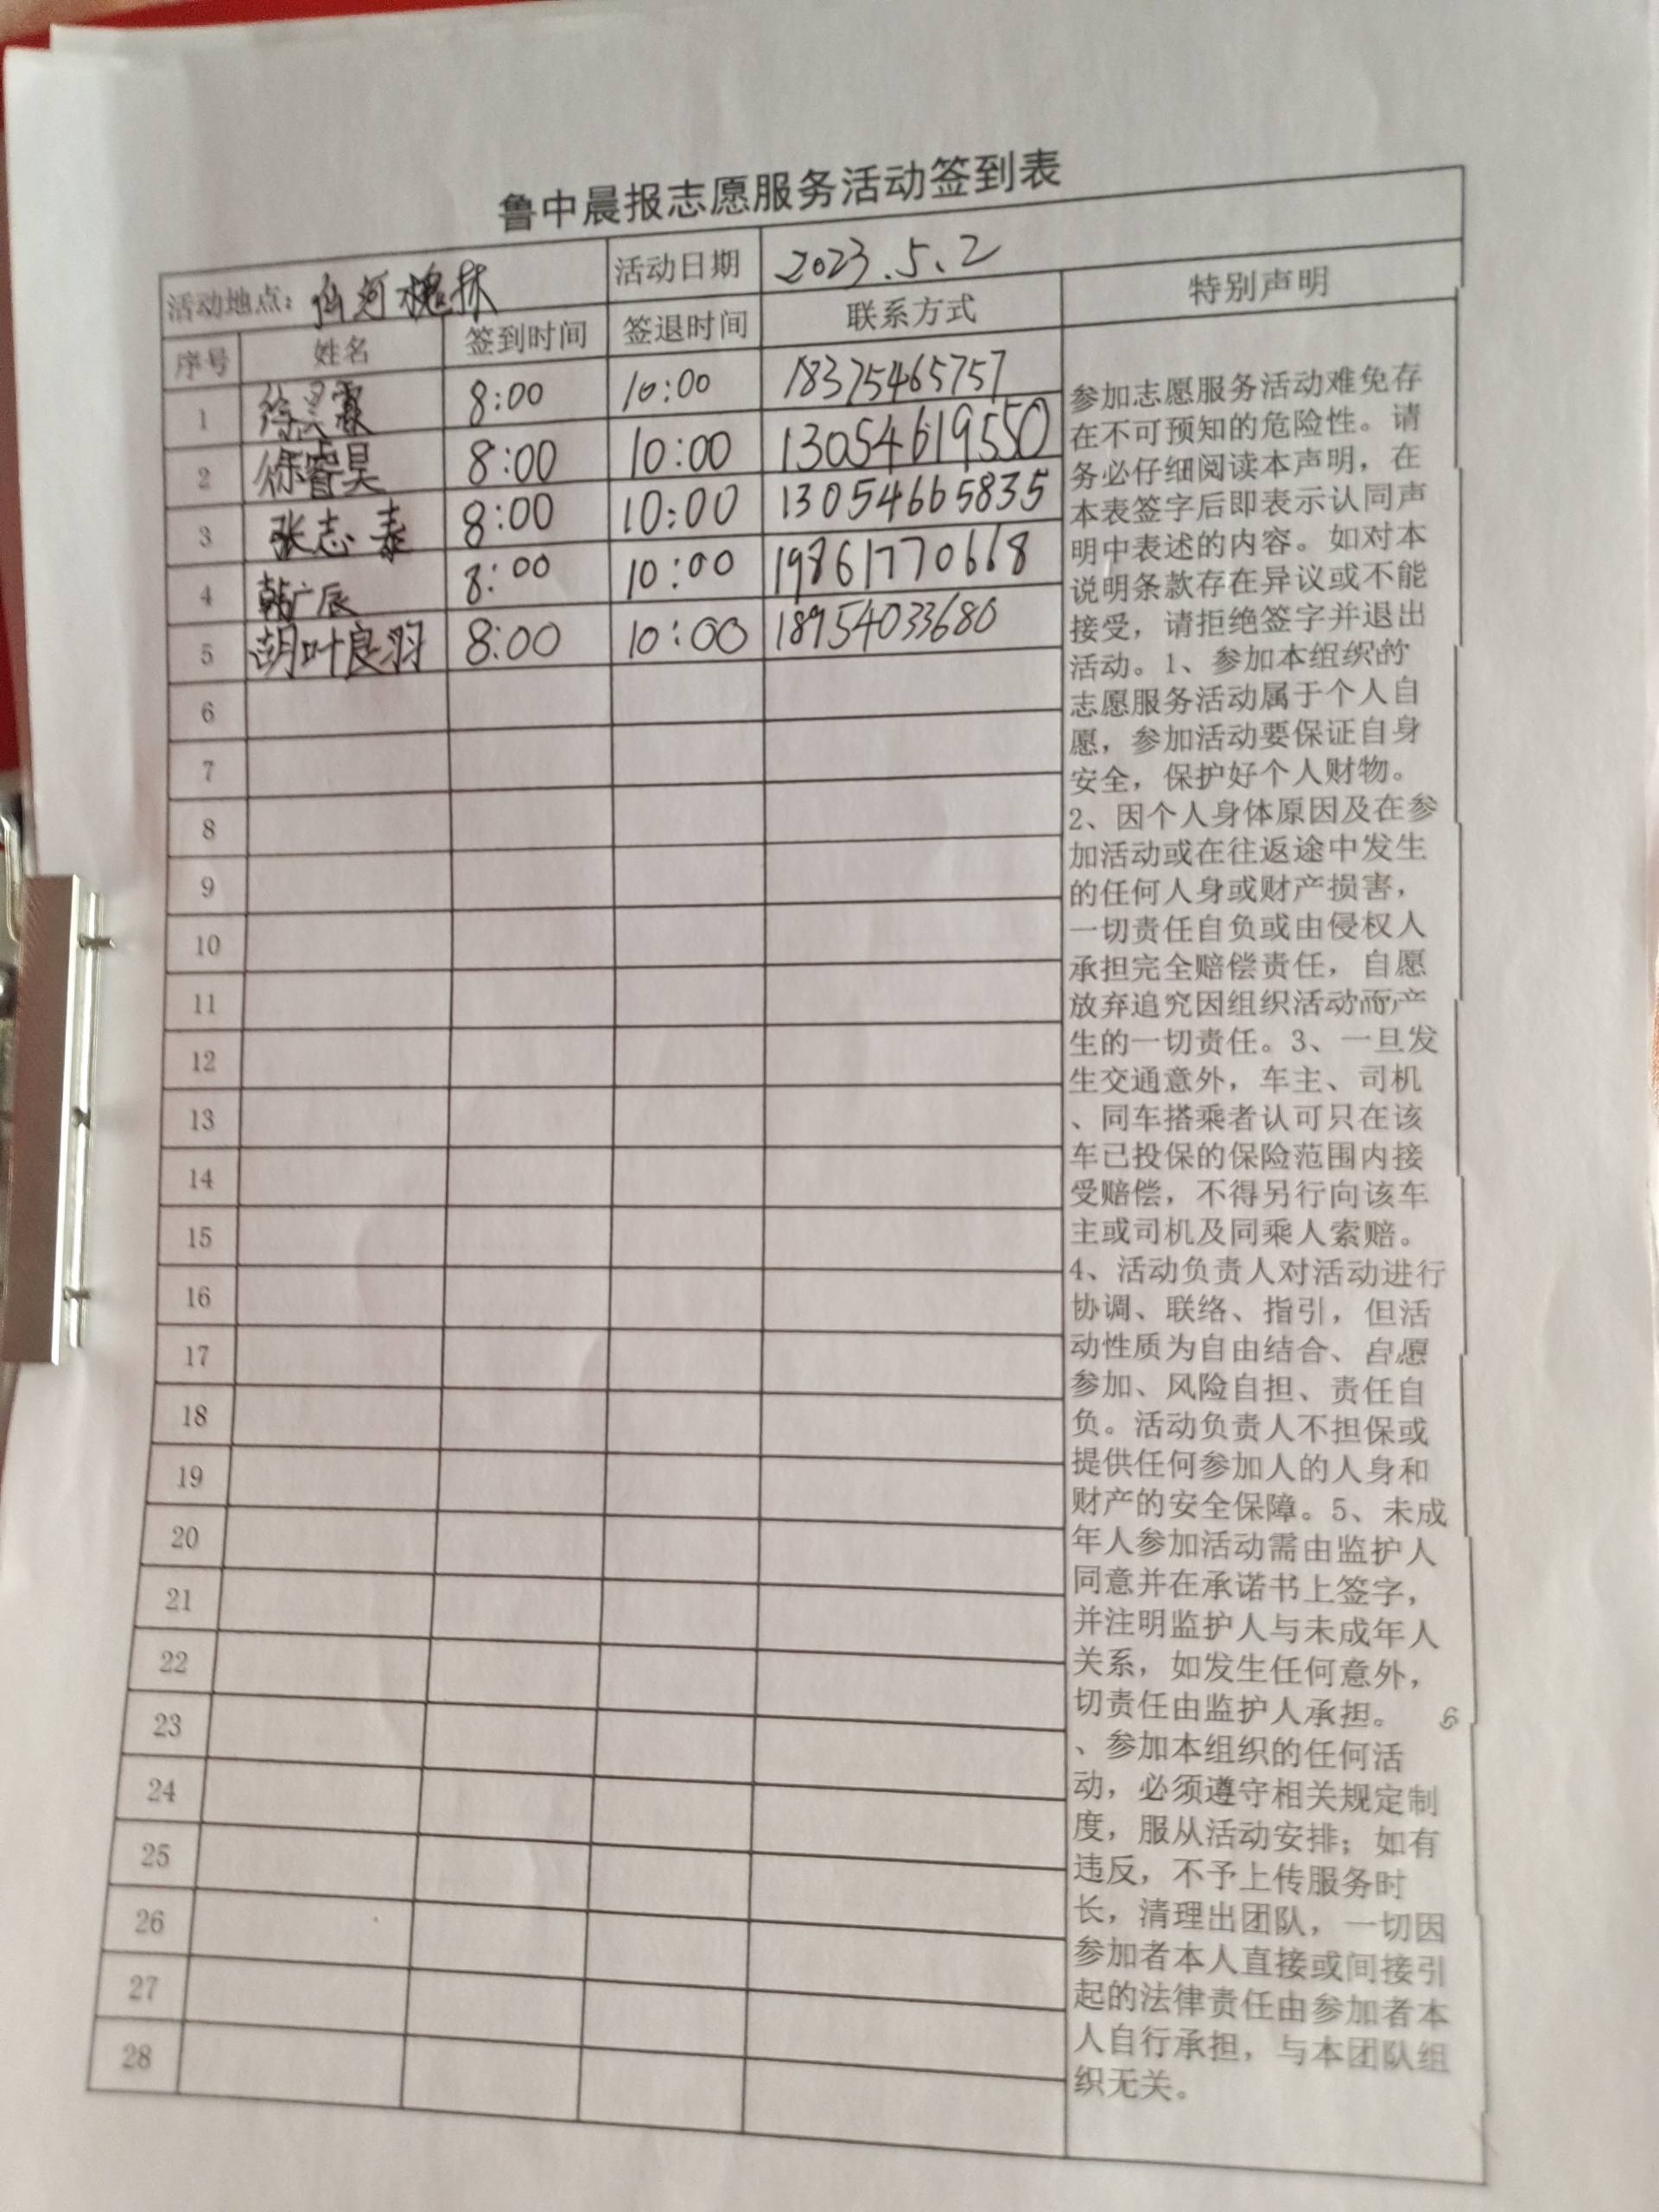 鲁中晨报志愿服务活动签到表
活动地点：仙河槐林 活动日期 2023.5.2
序号 姓名 签到时间 签退时间 联系方式 特别声明
1 徐昊霖 8:00 10:00 18375465757
2 徐睿昊 8:00 10:00 13054619550
3 张志泰 8:00 10:00 13054665835
4 韩广辰 8:00 10:00 19861770668
5 胡叶良羽 8:00 10:00 18954033680
6
7
8
9
10
11
12
13
14
15
16
17
18
19
20
21
22
23
24
25
26
27
28
参加志愿服务活动难免存
在不可预知的危险性。请
务必仔细阅读本声明，在
本表签字后即表示认同声
明中表述的内容。如对本
说明条款存在异议或不能
接受，请拒绝签字并退出
活动。1、参加本组织的
志愿服务活动属于个人自
愿，参加活动要保证自身
安全，保护好个人财物。
2、因个人身体原因及在参
加活动或在往返途中发生
的任何人身或财产损害，
一切责任自负或由侵权人
承担完全赔偿责任，自愿
放弃追究因组织活动而产
生的一切责任。3、一旦发
生交通意外，车主、司机
、同车搭乘者认可只在该
车已投保的保险范围内接
受赔偿，不得另行向该车
主或司机及同乘人索赔。
4、活动负责人对活动进行
协调、联络、指引，但活
动性质为自由结合、自愿
参加、风险自担、责任自
负。活动负责人不担保或
提供任何参加人的人身和
财产的安全保障。5、未成
年人参加活动需由监护人
同意并在承诺书上签字，
并注明监护人与未成年人
关系，如发生任何意外，
切责任由监护人承担。 6
、参加本组织的任何活
动，必须遵守相关规定制
度，服从活动安排；如有
违反，不予上传服务时
长，清理出团队，一切因
参加者本人直接或间接引
起的法律责任由参加者本
人自行承担，与本团队组
织无关。